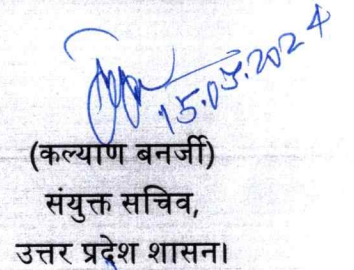 15.05.2024
(कल्याण बनर्जी)
संयुक्त सचिव,
उत्तर प्रदेश शासन।